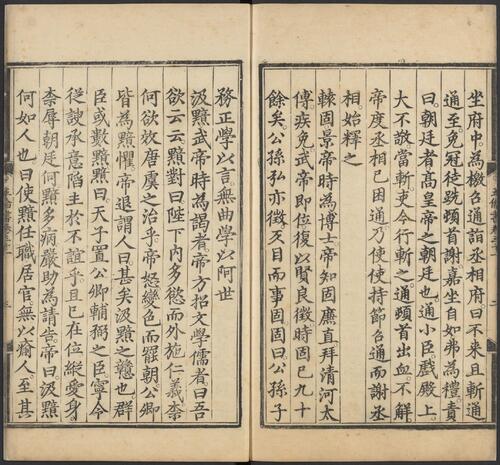 坐府中為檄召通詣丞相府曰不來且斬通
通至免冠徒跣頓首謝嘉坐自如弗為禮責
曰朝廷者高皇帝之朝廷也通小臣戲殿上
大不敬當斬吏今行斬之通頓首出血不解
帝度丞相已困通乃使使持節召通而謝丞
相始釋之
轅固景帝時為博士帝知固廉直拜清河太
傅疾免武帝即位復以賢良徵時固已九十
餘矣公孫弘亦徵仄目而事固固曰公孫子
務正學以言無曲學以阿世
汲黯武帝時為謁者帝方招文學儒者曰吾
欲云云黯對曰陛下內多慾而外施仁義柰
何欲效唐虞之治乎帝怒變色而罷朝公卿
皆為黯懼帝退謂人曰甚矣汲黯之戇也群
臣或數黯黯曰天子置公卿輔弼之臣寧令
從諛承意陷主於不誼乎且已在位縱愛身
柰辱朝廷何黯多病嚴助為請告帝曰汲黯
何如人也曰使黯任職居官無以瘉人至其